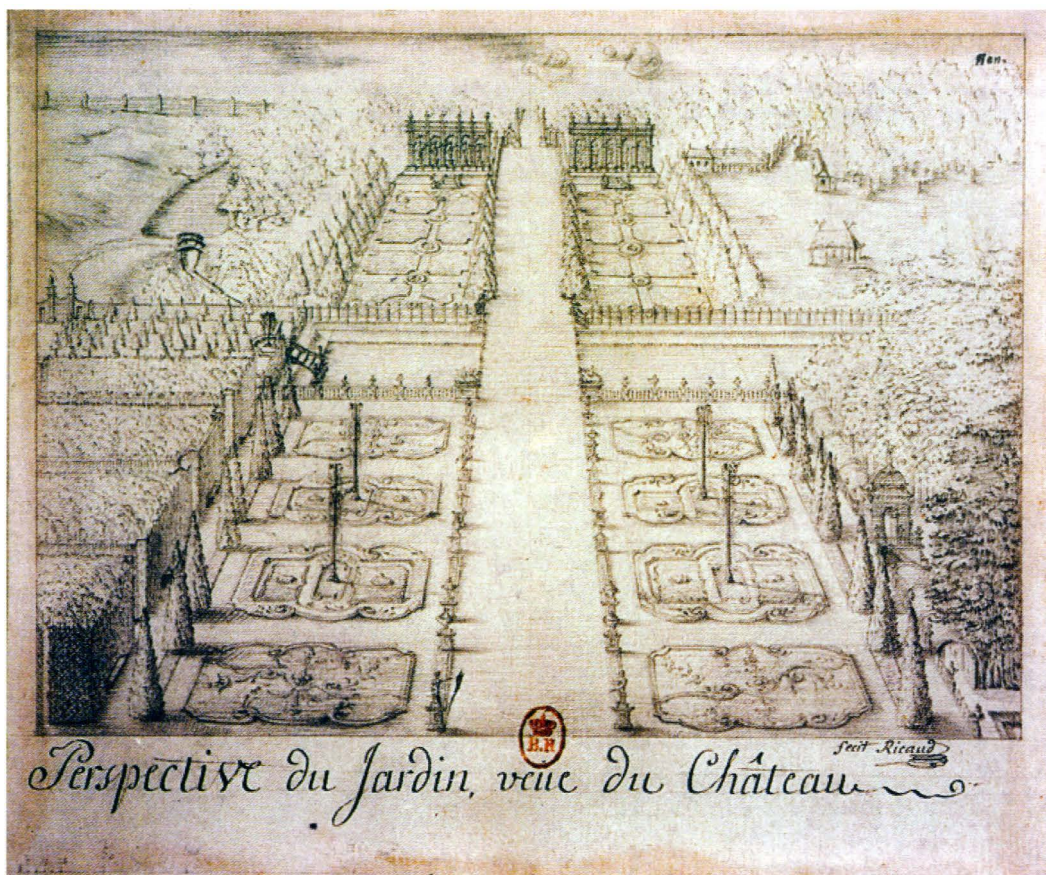 fecit Ricaud
Perspective du Jardin, veue du Château
B.R